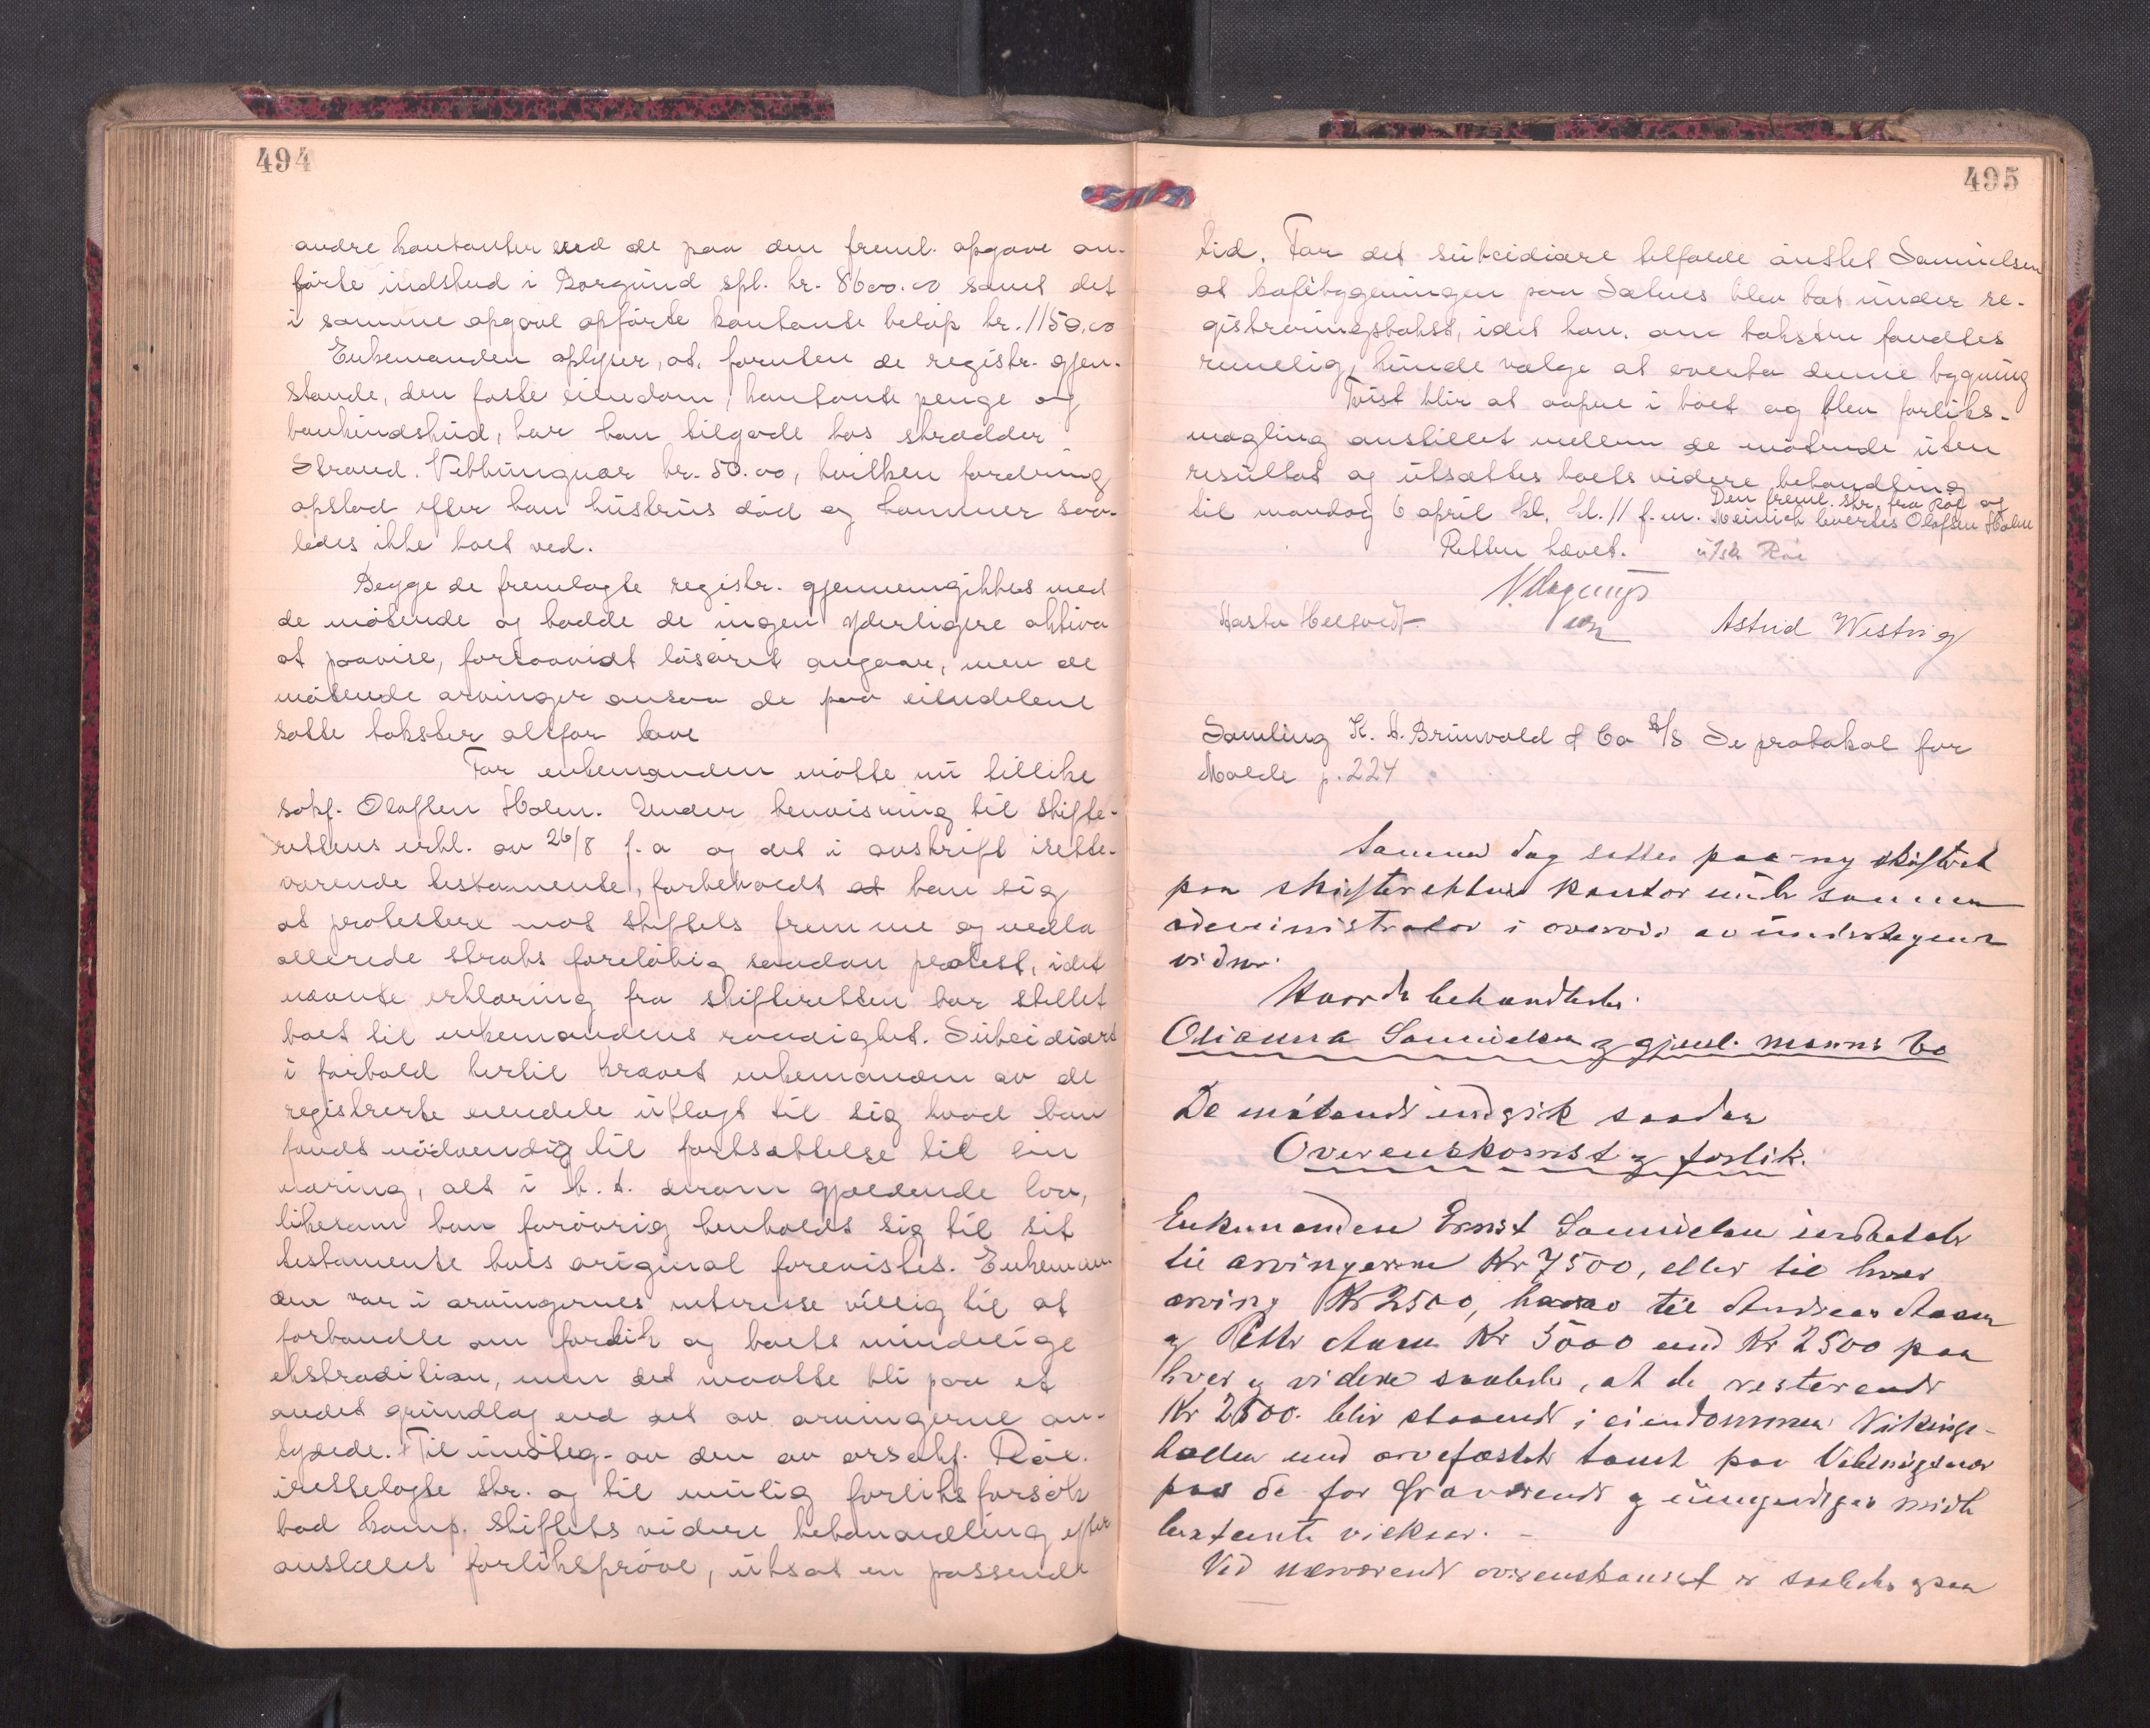 494
andre kontanter end de paa den freml. opgave an-
førte indskud i Borgund spb. kr. 8600.00 samt det
i samme opgave opførte kontante beløp kr. 1150.00
Enkemanden oplyser, at, foruten de registr. gjen-
stande, den faste eiendom, kontante penge og
bankindskud, har han tilgode hos skrædder
Strand. Vebbungnæs kr. 50.00, hvilken fordring
opstod efter han hustrus død og kommer saa-
ledes ikke boet ved.
Begge de fremlagte registr. gjennemgikkes med
de møtende og hadde de ingen yderligere aktiva
at paavise, forsaavidt løsøret angaar, men de
møtende arvinger ansaa de paa eiendelene
satte takster altfor lave
For enkemanden møtte nu tillike
sakf. Olafsen Holm. Under henvisning til skifte-
rettens erkl. av 26/8 f. a og det i avskrift irette-
værende testamente, forbeholdt at han sig
at protestere mot skiftets fremme og nedla
allerede straks foreløbig saadan protest, idet
nævnte erklæring fra skifteretten har stillet
boet til enkemandens raadighet. Subsidiært
i forhold hertil krævet enkemanden av de
registrerte eiendele utlagt til sig hvad han
fandt nødvendig til fortsættelse til sin
næring, alt i h. t. derom gjældende lov,
likesom han forøvrig henholdt sig til sit
testamente hvis original forevistes. Enkeman
den var i arvingernes interesse villig til at
forhandle om forlik og boets mindelige
ekstradition, men det maatte bli paa et
andet grundlag end det av arvingerne an-
tydede. Til imøteg. av den av orsakf. Røe.
irettelagte skr. og til mulig forliksforsøk
bad komp. skiftets videre behandling efter
anstillet forliksprøve, utsat en passende
495
tid. For det subsidiære tilfælde ønsket Samuelsen
at kafebygningen paa Sætnes blev tat under re-
gistreringstakst, idet han, om taksten fandtes
rimelig, kunde vælge at overta denne bygning
Tvist blir at aapne i boet og blev forliks-
mægling anstillet mellem de møtende uten
resultat og utsættes boets videre behandling
til mandag 6 april kl. kl. 11 f. m. Den freml. skr. fra Røe og
Meinich levertes Olafsen Holm
Retten hævet. u/sk Røe
Aasta Heltvedt Astrid Westvig
Samling K. A. Brunvold & Co A/S Se protokol for
Molde p. 224
Samme dag sattes paa ny skifteret
paa skifterettens kontor med samme
administrator i overvær av undertegnede
vidner.
Hvorda behandledes
Olianna Samuelsen og gjenl. manns bo
De møtende indgik saadan
Overenskomst og forlik.
Enkemanden Ernst Samuelsen indbetaler
til arvingerne Kr 7500, eller til hver
arving Kr 2500, herav til Andreas Aaen
og Petter Aaen Kr 5000 med Kr 2500 paa
hver og videre saaledes, at de resterende
Kr 2500. blir staaende i eiendommen Vikinge-
hallen med arvefæstet tomt paa Veblungsnæs
paa de for fraværende og umyndiges midler
bestemte vilkaar. -
Ved nærværende overenskomst er saaledes ogsaa